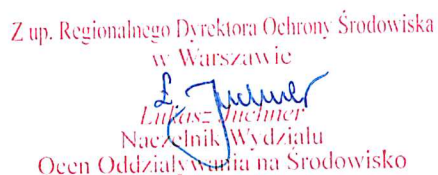 Z up. Regionalnego Dyrektora Ochrony Środowiska
w Warszawie
Łukasz Juchner
Naczelnik Wydziału
Ocen Oddziaływania na Środowisko